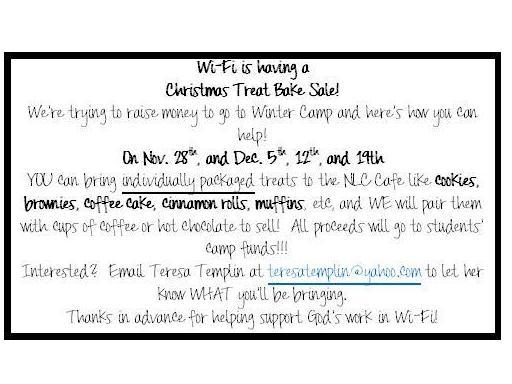 Wi-Fi is having a
Christmas Treat Bake Sale!
We're trying to raise money to go to Winter Camp and here's how you can
help!
On Nov. 28th, and Dec. 5th, 12th, and 19th
YOU can bring individually packaged treats to the NLC Cafe like cookies,
brownies, coffee cake, cinnamon rolls, muffins, etc, and WE will pair them
with cups of coffee or hot chocolate to sell!  All proceeds will go to students'
camp funds!!!
Interested?  Email Teresa Templin at teresatemplin@yahoo.com to let her
know WHAT you'll be bringing.
Thanks in advance for helping support God's work in Wi-Fi!